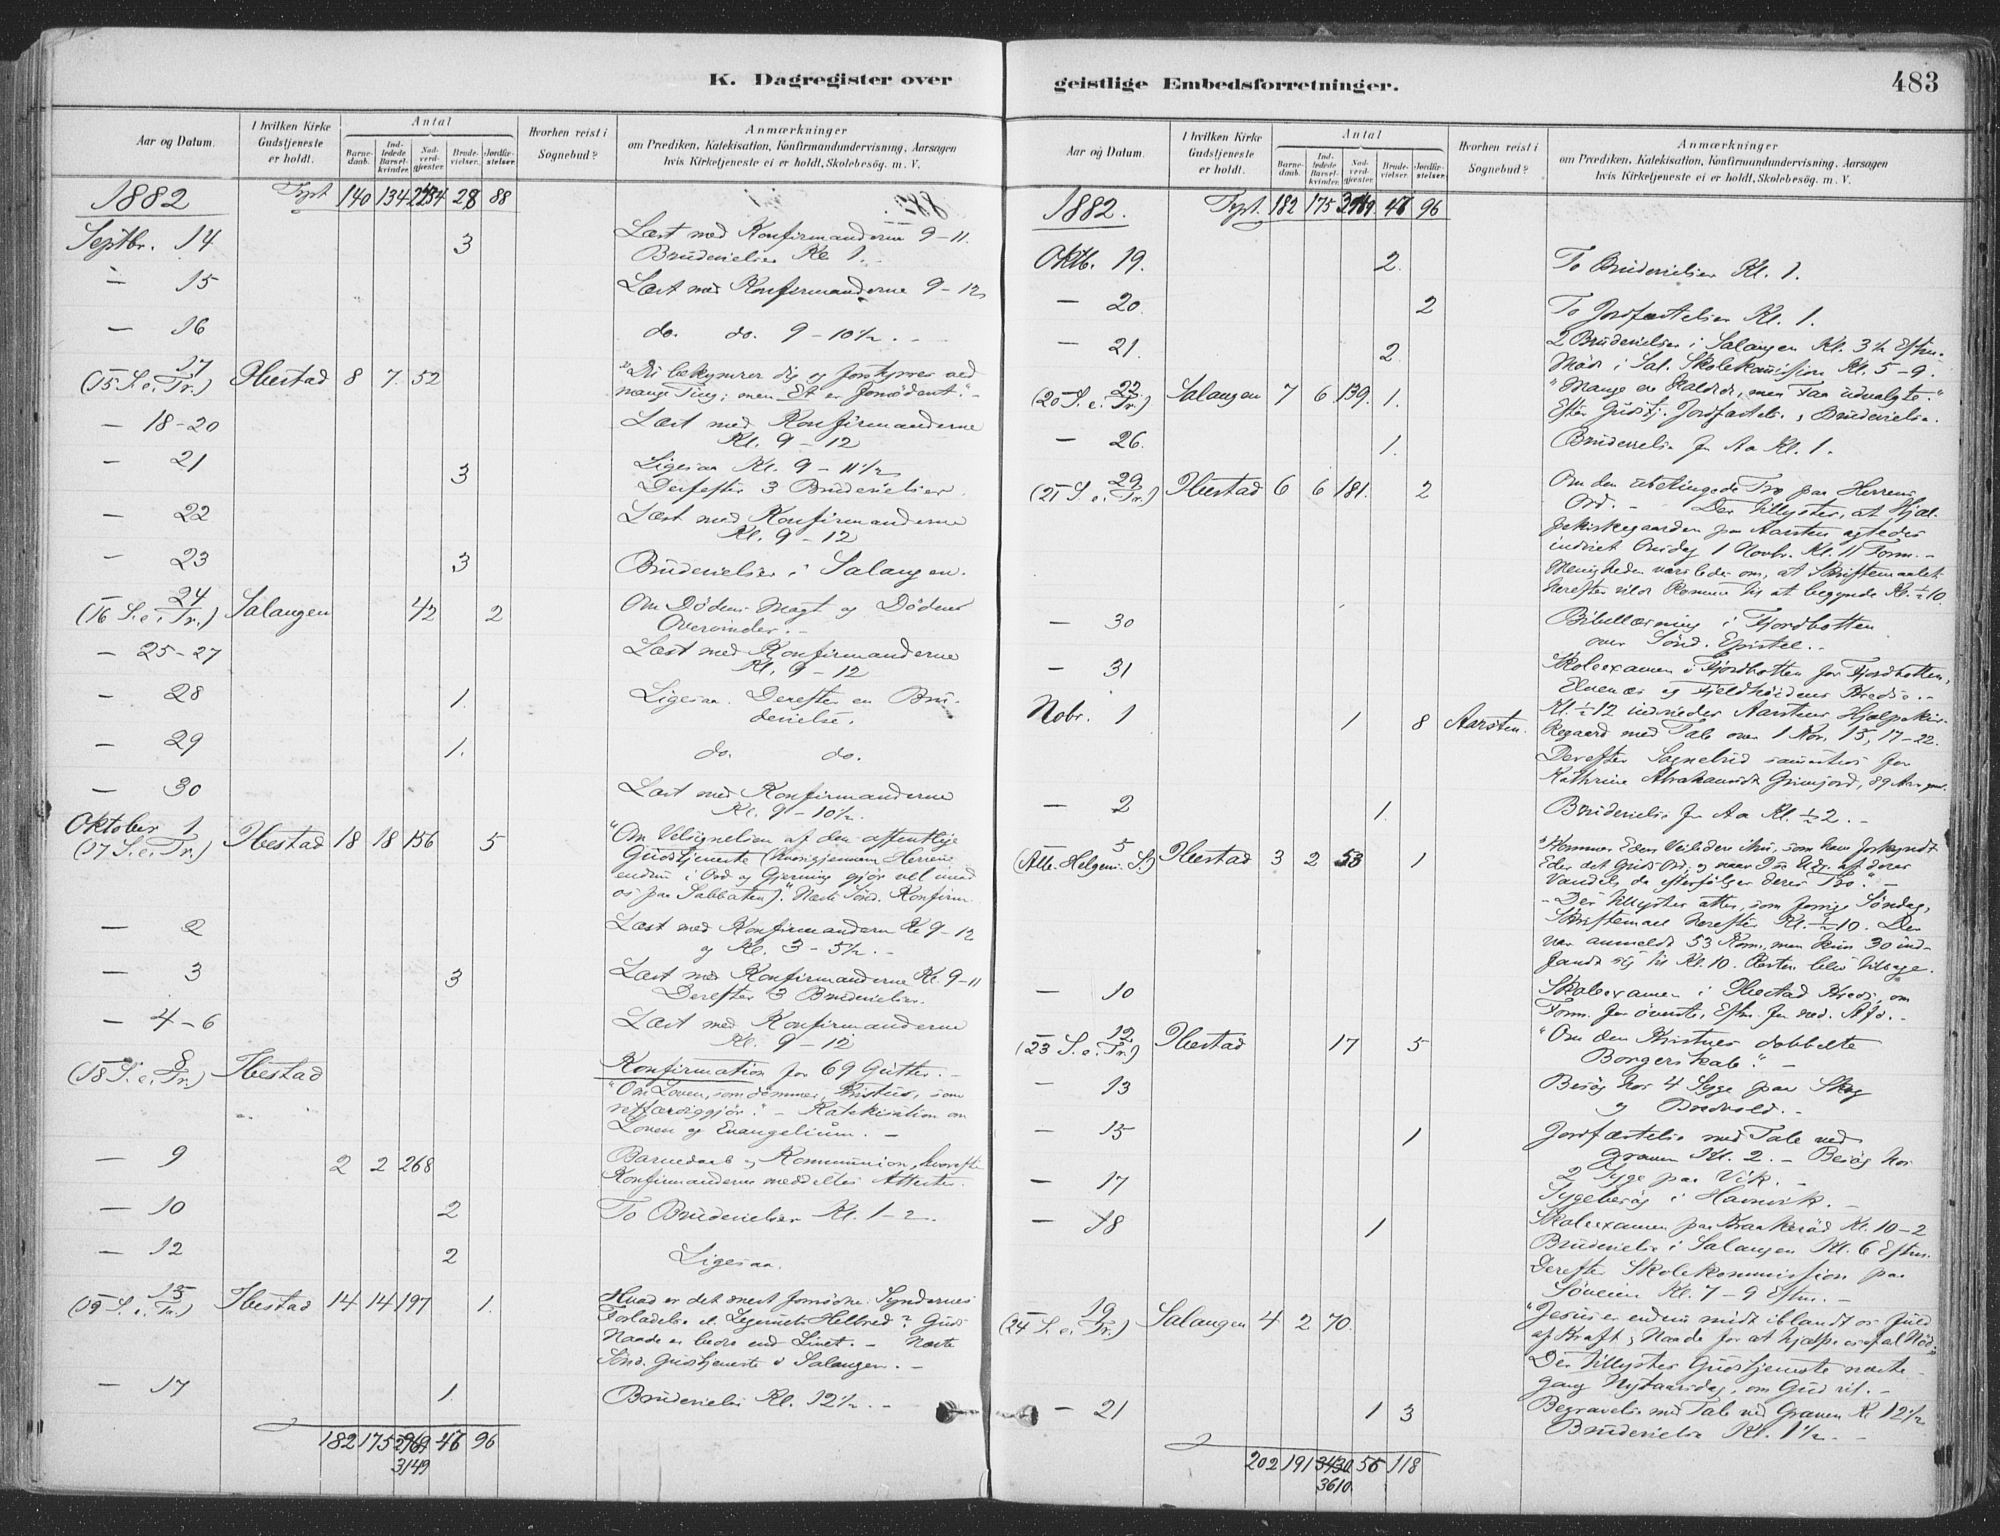 K. Dagregister over
Aar og Datum.
I hvilken Kirke Gudstjeneste er holdt.
Antal
Barnedaab.
Indledede Barselkvinder.
Nadverdgjæster.
Brudevielser.
Jordfæstelser.
Hvorhen reist i Sognebud?
Anmærkninger
om Prædiken, Katekisation, Konfirmandundervisning, Aarsagen
hvis Kirketjeneste ei er holdt, Skolebesög. m. V.
1882 Trpt. 140 134 28 88
Septbr. 14 3 Læst med Konfirmanderne 9-11.
Brudevielser Kl. 1.
- 15 Læst med Konfirmanderne 9-12
- 16 do. do. 9-10½.
- 17
(15 S. e. Tr.) Ibestad 8 7 52 "Du bekymrer dig og forstyrres ved
mange Ting; men Et er fornødent."
- 18-20 Læst med Konfirmanderne
Kl. 9-12
- 21 3 Ligesaa Kl. 9-11½
Derefter 3 Brudevielser.
- 22 Læst med Konfirmanderne
Kl. 9-12
- 23 3 Brudevielser i Salangen.
- 24
(16 S. e. Tr.) Salangen 42 2 Om Dødens Magt og Dødens
Overvinder.-
- 25-27 Læst med Konfirmanderne
Kl. 9-12
- 28 1. Ligesaa. Derefter en Bru-
devielse.
- 29 1. do. do.
- 30 Læst med Konfirmanderne
Kl. 9-10½.
Oktober 1
(17 S. e. Tr.) Ibestad 18 18 156 5 "Om Velsignelsen af den offentlige
Gudstjeneste (hvorigjennem Herren
endnu i Ord og Gjerning gjør vel imod
os paa Sabbaten)." Næste Sønd. Konfirm.
- 2 Læst med Konfirmanderne Kl. 9-12
og Kl. 3-5½.-
- 3 3 Læst med Konfirmanderne Kl. 9-11
Derefter 3 Brudevielser.
- 4-6 Læst med Konfirmanderne
Kl. 9-12
- 8
(18 S. e. Tr.) Ibestad Konfirmation for 69 Gutter.-
"Om Loven, som dømmer, Kristus, som
retfærdiggjør." - Katekisation om
Loven og Evangelium.-
- 9 2 2 268 Barnedaab og Kommunion, hvorefter
Konfirmanderne meddeltes Attester.
- 10 2 To Brudevielser Kl. 1-2.
- 12 2 Ligesaa.
- 15
(19 S. e. Tr.) Ibestad 14 14 197 1. Hvad er det mest fornødne: Syndernes
Forladelse el. Legemets Helbred? Guds
Naade er bedre end Livet.- Næste
Sønd. Gudstjeneste i Salangen.-
- 17 1. Brudevielse Kl. 12½.-
182 175 2969 96
3149
geistlige Embedsforretninger. 483
Aar og Datum.
I hvilken Kirke Gudstjeneste er holdt.
Antal
Barnedaab.
Indledede Barselkvinder.
Nadverdgjæster.
Brudevielser.
Jordfæstelser.
Hvorhen reist i Sognebud?
Anmærkninger
om Prædiken, Katekisation, Konfirmandundervisning, Aarsagen
hvis Kirketjeneste ei er holdt, Skolebesög. m. V.
1882. Trpt. 182 175 96
Oktb. 19. 2. To Brudevielser Kl. 1.
- 20 2 To Jordfæstelser Kl. 1.
- 21. 2. 2 Brudevielser i Salangen Kl. 3½ Eftm.
Møde i Sal. Skolekommission Kl. 5-9.
- 22.
(20 S. e. Tr.) Salangen 7 6 139. 1. "Mange ere kaldede, men Faa udvalgte."
Efter Gudstj. Jordfæstelse, Brudevielse.
- 26. 1. Brudevielse Kl. 1.
- 29
(21 S. e. Tr.) Ibestad 6 6 181. 2 Om den ubetingede Tro paa Herrens
Ord.- Der tillystes, at Hjæl-
pekirkegaarden paa Aarsten agtedes
indviet Onsdag 1 Novbr. Kl. 11 Form.-
Menigheden varsledes om, at Skriftemaalet
herefter vilde komme til at begynde Kl. ½10.
- 30 Bibellæsning i Fjordbotten
over Sønd. Epistel.-
- 31 Skoleexamen i Fjordbotten for Fjordbotten,
Elvenæs og Fjeldhøidens Kreds.-
Nobr. 1 1 8 Aarsten. Kl. ½12 indviedes Aarstens Hjælpekir-
kegaard med Tale over 1 Kor. 15, 17-22.
Derefter Sognebud sammesteds for
Kathrine Abrahamsdt Grimsjord, 89 Aar gml.
- 2 1. Brudevielse Kl. ½2.-
- 5
(Alle Helgens S.) Ibestad 3 2 53 1 "Kommer Eders Veiledere ihu, som have forkyndt
Eder det Guds Ord, og naar I se Udg. af deres
Vandel, da efterfølger deres Tro."-
- Der tillystes atter, som forrige Søndag,
Skriftemaal herefter Kl. ½10. Der
var anmeldt 53 Kom., men kun 30 ind-
fandt sig til Kl. 10. Resten blev tilbage.
- 10 Skoleexamen i Ibestad Kreds, om
Form. for øverste, Eftm. for ned. Afd.-
- 12
(23 S. e. Tr.) Ibestad 17 5 "Om den Kristnes dobbelte
Borgerskab."-
- 13 Besøg hos 4 Syge paa Skog
og Bredvold.-
- 15 1 Jordfæstelse med Tale ved
Graven Kl. 2.- Besøg hos
2 Syge paa Vik.-
- 17 Sygebesøg i Havnvik.-
- 18 1 Skoleexamen paa Kl. 10-2
Brudevielse i Salangen Kl. 6 Eftm.
Derefter Skolekommission paa
Søveien Kl. 7-9 Eftm.-
- 19
(24 S. e. Tr.) Salangen 4 2 70. "Jesus er endnu midt iblandt os fuld
af Kraft og Naade for at hjælpe os af al Nød."
Der tillystes Gudstjeneste næste
gang Nytaarsdag, om Gud vil.-
- 21 1 3 Begravelse med Tale ved Graven Kl. 12½
Brudevielse Kl. 1½.-
202 191 3430 118
3610